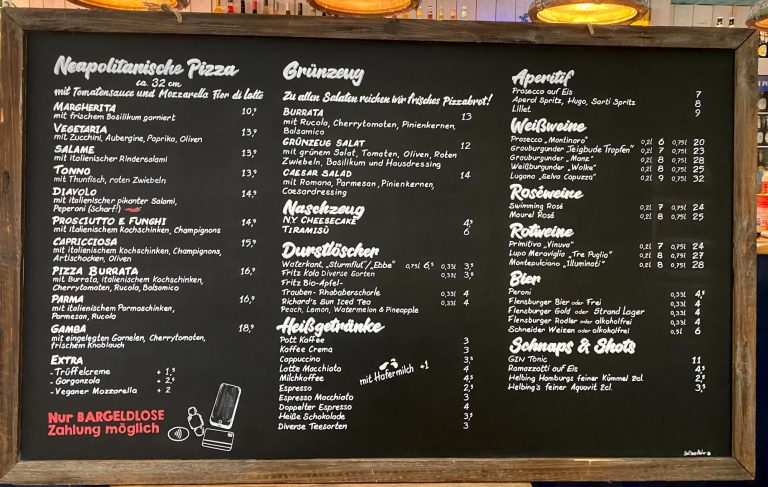 Neapolitanische Pizza
ca. 32 cm
mit Tomatensauce und Mozzarella Fior di latte
MARGHERITA 10,⁹
mit frischem Basilikum garniert
VEGETARIA 13,⁹
mit Zucchini, Aubergine, Paprika, Oliven
SALAME 13,⁹
mit italienischer Rindersalami
TONNO 13,⁹
mit Thunfisch, roten Zwiebeln
DIAVOLO 14,⁹
mit italienischer pikanter Salami,
Peperoni (Scharf!)
PROSCIUTTO E FUNGHI 14,⁹
mit italienischem Kochschinken, Champignons
CAPRICCIOSA 15,⁹
mit italienischem Kochschinken, Champignons,
Artischocken, Oliven
PIZZA BURRATA 16,⁹
mit Burrata, italienischem Kochschinken,
Cherrytomaten, Rucola, Balsamico
PARMA 16,⁹
mit italienischem Parmaschinken,
Parmesan, Rucola
GAMBA 18,⁹
mit eingelegten Garnelen, Cherrytomaten,
frischem Knoblauch
EXTRA
-Trüffelcreme + 1,⁵
-Gorgonzola + 2,⁵
-Veganer Mozzarella + 2
Nur BARGELDLOSE
Zahlung möglich
Grünzeug
Zu allen Salaten reichen wir frisches Pizzabrot!
BURRATA 13
mit Rucola, Cherrytomaten, Pinienkernen,
Balsamico
GRÜNZEUG SALAT 12
mit grünem Salat, Tomaten, Oliven, Roten
Zwiebeln, Basilikum und Hausdressing
CAESAR SALAD 14
mit Romana, Parmesan, Pinienkernen,
Caesardressing
Naschzeug
NY CHEESECAKE 4,⁵
TIRAMISÙ 6
Durstlöscher
Waterkant „Sturmflut"/„Ebbe" 0,75l 6,⁵ 0,33l 3,⁵
Fritz Kola Diverse Sorten 0,33l 3,⁵
Fritz Bio-Apfel-
Trauben- Rhabarberschorle 0,33l 4
Richard's Sun Iced Tea 0,33l 4
Peach, Lemon, Watermelon & Pineapple
Heißgetränke
Pott Kaffee 3
Kaffee Crema 3
Cappuccino 3,⁵
Latte Macchiato 4
Milchkaffee 4,⁵
Espresso 2,⁵
Espresso Macchiato 3
Doppelter Espresso 4
Heiße Schokolade 3,⁵
Diverse Teesorten 3
mit Hafermilch +1
Aperitif
Prosecco auf Eis 7
Aperol Spritz, Hugo, Sarti Spritz 8
Lillet 9
Weißweine
Prosecco „Montinaro" 0,2l 6 0,75l 20
Grauburgunder „Teigbude Tropfen" 0,2l 7 0,75l 23
Grauburgunder „Manz" 0,2l 8 0,75l 28
Weißburgunder „Wolke" 0,2l 8 0,75l 25
Lugana „Selva Capuzza" 0,2l 9 0,75l 32
Roséweine
Swimming Rosé 0,2l 7 0,75l 24
Mourel Rosé 0,2l 8 0,75l 25
Rotweine
Primitivo „Vinuva" 0,2l 7 0,75l 24
Lupo Meraviglio „Tre Puglia" 0,2l 8 0,75l 27
Montepulciano „Illuminati" 0,2l 8 0,75l 28
Bier
Peroni 0,33l 4,⁵
Flensburger Bier oder Frei 0,33l 4
Flensburger Gold oder Strand Lager 0,33l 4
Flensburger Radler oder alkoholfrei 0,33l 4
Schneider Weizen oder alkoholfrei 0,5l 6
Schnaps & Shots
GIN Tonic 11
Ramazzotti auf Eis 4,⁵
Helbing Hamburgs feiner Kümmel 2cl. 3
Helbing's feiner Aquavit 2cl. 3,⁵